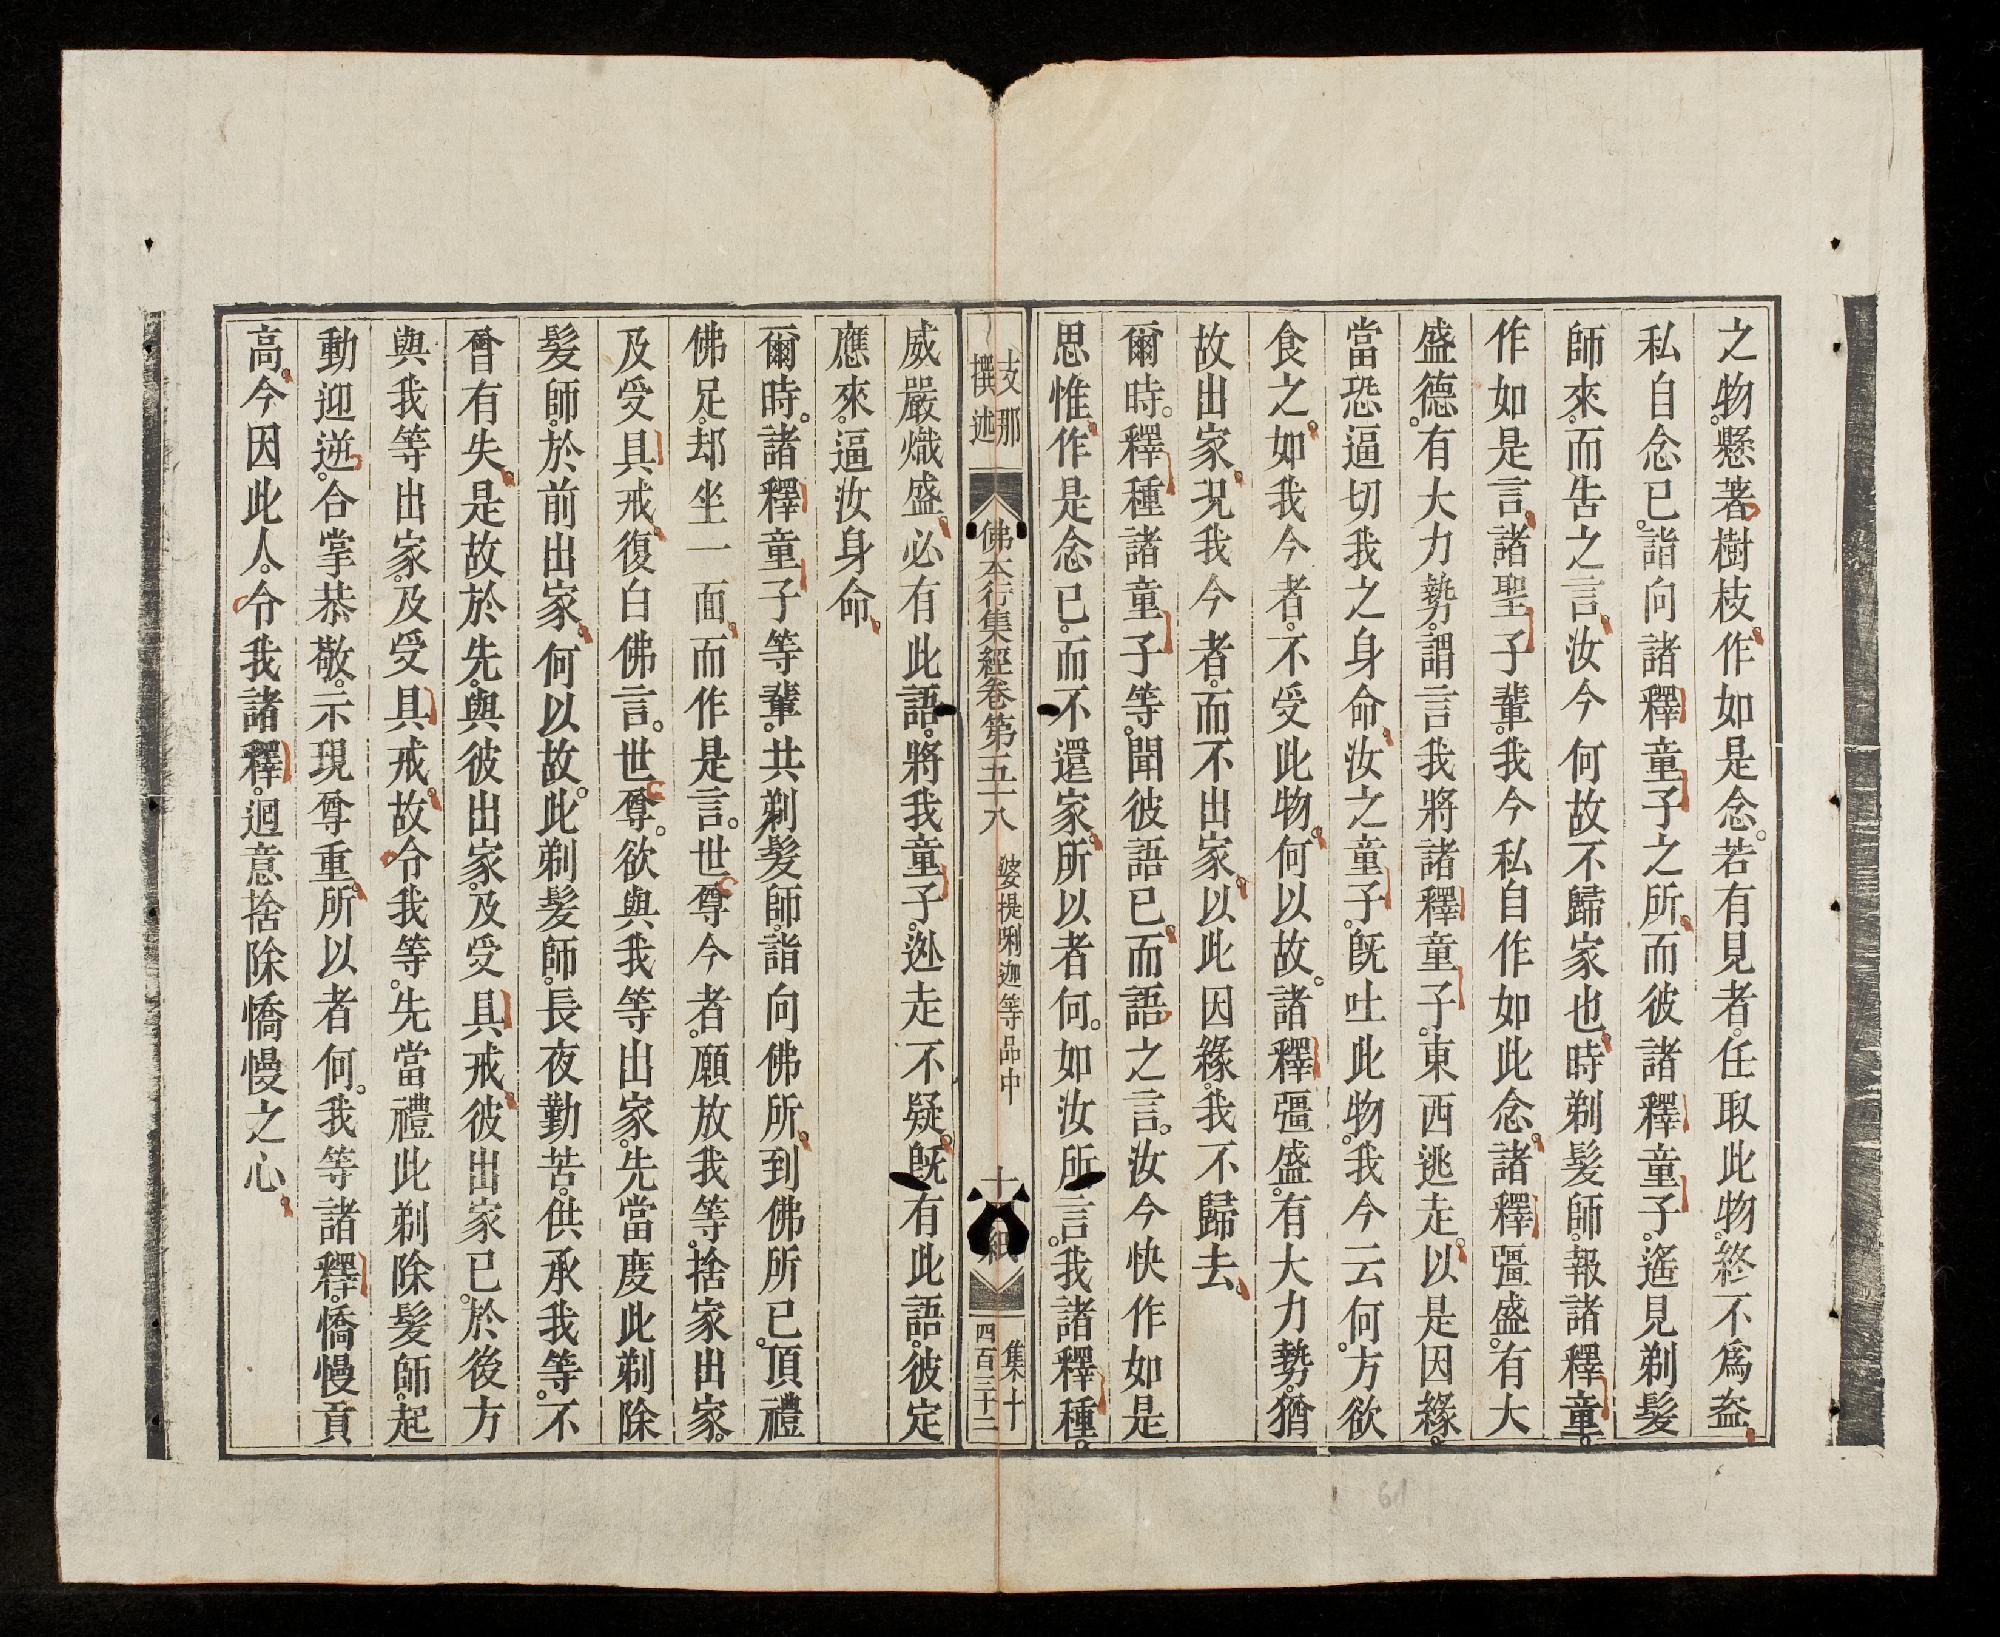 之物。懸著樹枝。作如是念。若有見者。任取此物。終不爲盗。
私自念已。詣向諸釋童子之所。而彼諸釋童子。遙見剃髮
師來。而告之言。汝今何故不歸家也。時剃髮師。報諸釋童。
作如是言。諸聖子輩。我今私自作如此念。諸釋彊盛。有大
盛德。有大力勢。謂言我將諸釋童子。東西逃走。以是因緣。
當恐逼切我之身命。汝之童子。旣吐此物。我今云何。方欲
食之。如我今者。不受此物。何以故。諸釋彊盛。有大力勢。猶
故出家。況我今者。而不出家。以此因緣。我不歸去。
爾時。釋種諸童子等。聞彼語已。而語之言。汝今快作如是
思惟。作是念已。而不還家。所以者何。如汝所言。我諸釋種。
支那
撰述
佛本行集經卷第五十八 婆提唎迦等品中
十 紙
集十
四百三十二
威嚴熾盛。必有此語。將我童子。逃走不疑。旣有此語。彼定
應來。逼汝身命。
爾時。諸釋童子等輩。共剃髮師。詣向佛所。到佛所已。頂禮
佛足。却坐一面。而作是言。世尊今者。願放我等。捨家出家。
及受具戒。復白佛言。世尊。欲與我等出家。先當度此剃除
髮師。於前出家。何以故。此剃髮師。長夜勤苦。供承我等。不
會有失。是故於先。與彼出家。及受具戒。彼出家已。於後方
與我等出家。及受具戒。故令我等。先當禮此剃除髮師。起
動迎逆。合掌恭敬。示現尊重。所以者何。我等諸釋。憍慢貢
高。今因此人。令我諸釋。迴意捨除憍慢之心。
61